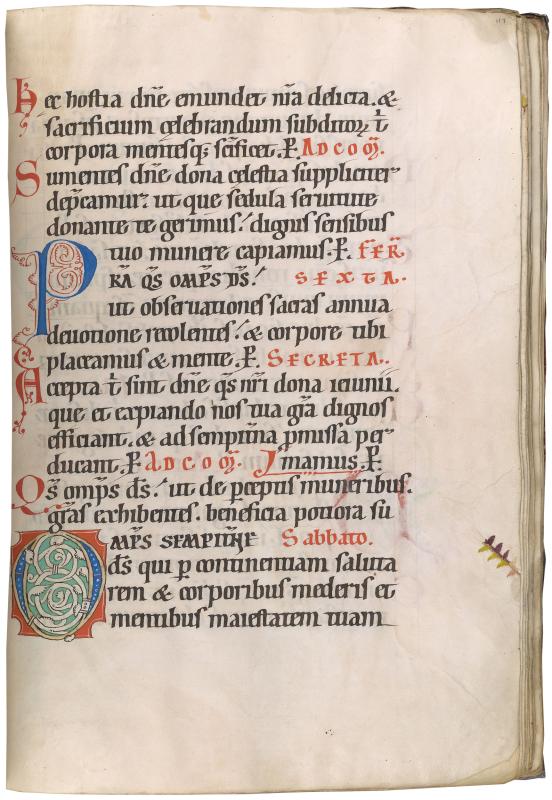 Hec hostia dñe emundet nr̃a delicta. &
sacrificium celebrandum subditoꝝ t̄
corpora mentesq; sc̄ificet. P̱. AD COM̄.
Sumentes dñe dona celestia suppliciter
dep̄camur: ut que sedula seruitute
donante te gerimus. dignis sensibus
tuo munere capiamus. P̱. FER̄.
PRA QS̄ OMP̄S DS̄. SEXTA.
ut obseruationes sacras annua
deuotione recolentes. & corpore tibi
placeamus & mente. P̱. SECRETA.
Accepta t̄ sint dñe qs̄ nr̄i dona ieiunii.
que et expiando nos tua gr̄a dignos
efficiant. & ad sempit̄na p̄missa per
ducant. P̱. AD COM̄. P̱.
Qs̄ omp̄s ds̄. ut de p̱ceptis muneribus.
gr̄as exhibentes. beneficia potiora su
OMP̄S SEMPIT̄NE Sabbato.
ds̄ qui p̱ continentiam saluta
rem & corporibus mederis et
mentibus maiestatem tuam